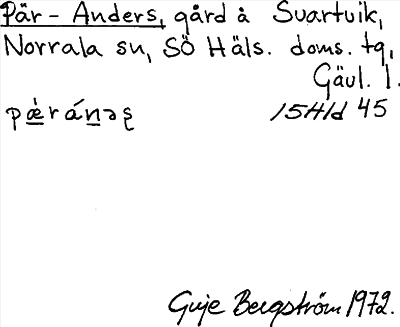 Pär-Anders, gård å Svartvik,
Norrala sn, SÖ Häls. doms. tg,
Gävl. l.
pæ̀ránəʂ 15H1d 45
Guje Bergström 1972.